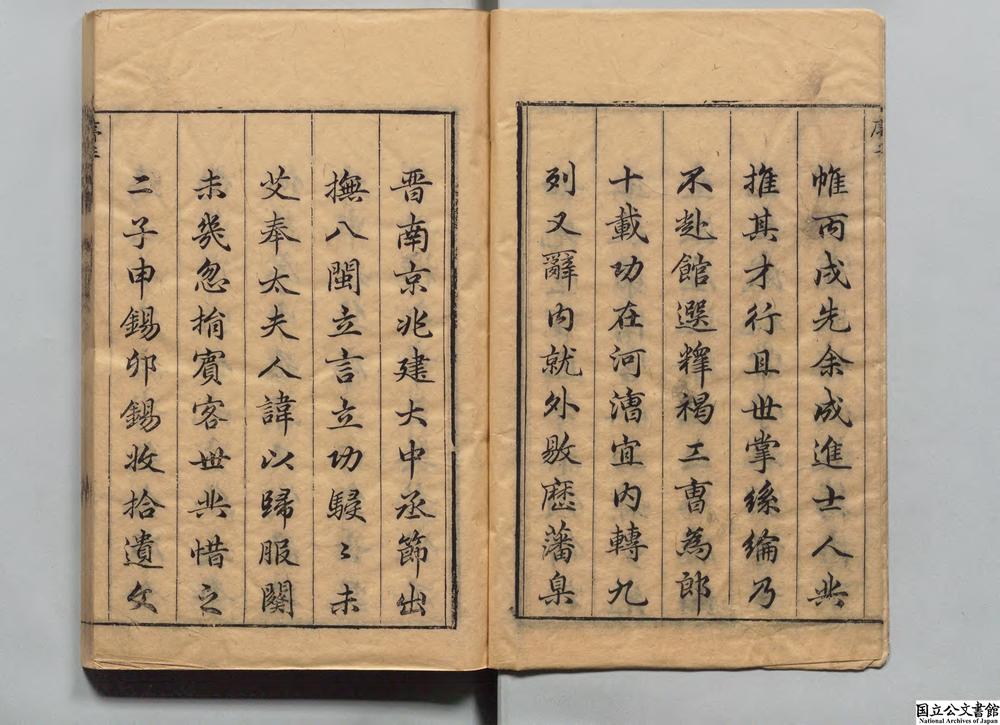 帷丙戌先余成進士人共
推其才行且世掌絲綸乃
不赴館選釋褐工曹為郎
十載功在河漕宜内轉九
列又辭内就外敭歷藩臬
晋南京兆建大中丞節出
撫八閩立言立功駸〻未
艾奉太夫人諱以歸服闋
未幾忽捐賓客世共惜之
二子申錫卯錫收拾遺文
国立公文書館
National Archives of Japan